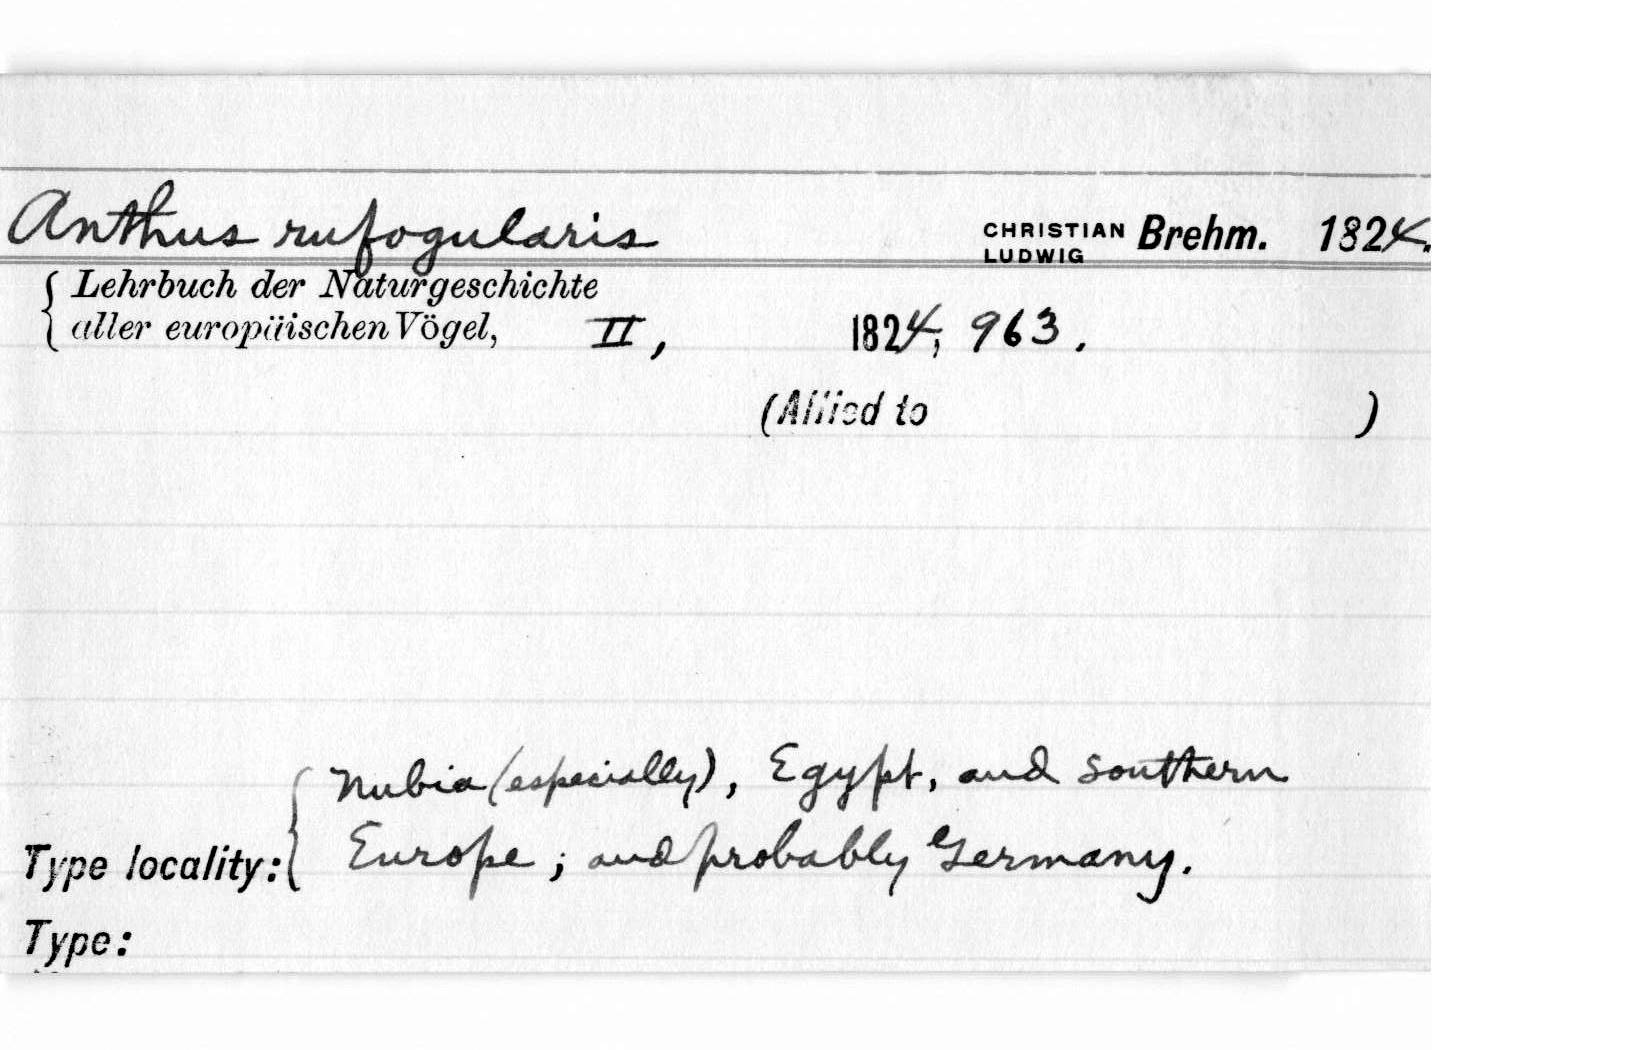 Anthus rufogularis CHRISTIAN LUDWIG Brehm. 1824.
Lehrbuch der Naturgeschichte
aller europäischen Vögel, II, 1824, 963.
(Allied to )
Nubia (especially), Egypt, and southern
Type locality: Europe; and probably Germany.
Type: